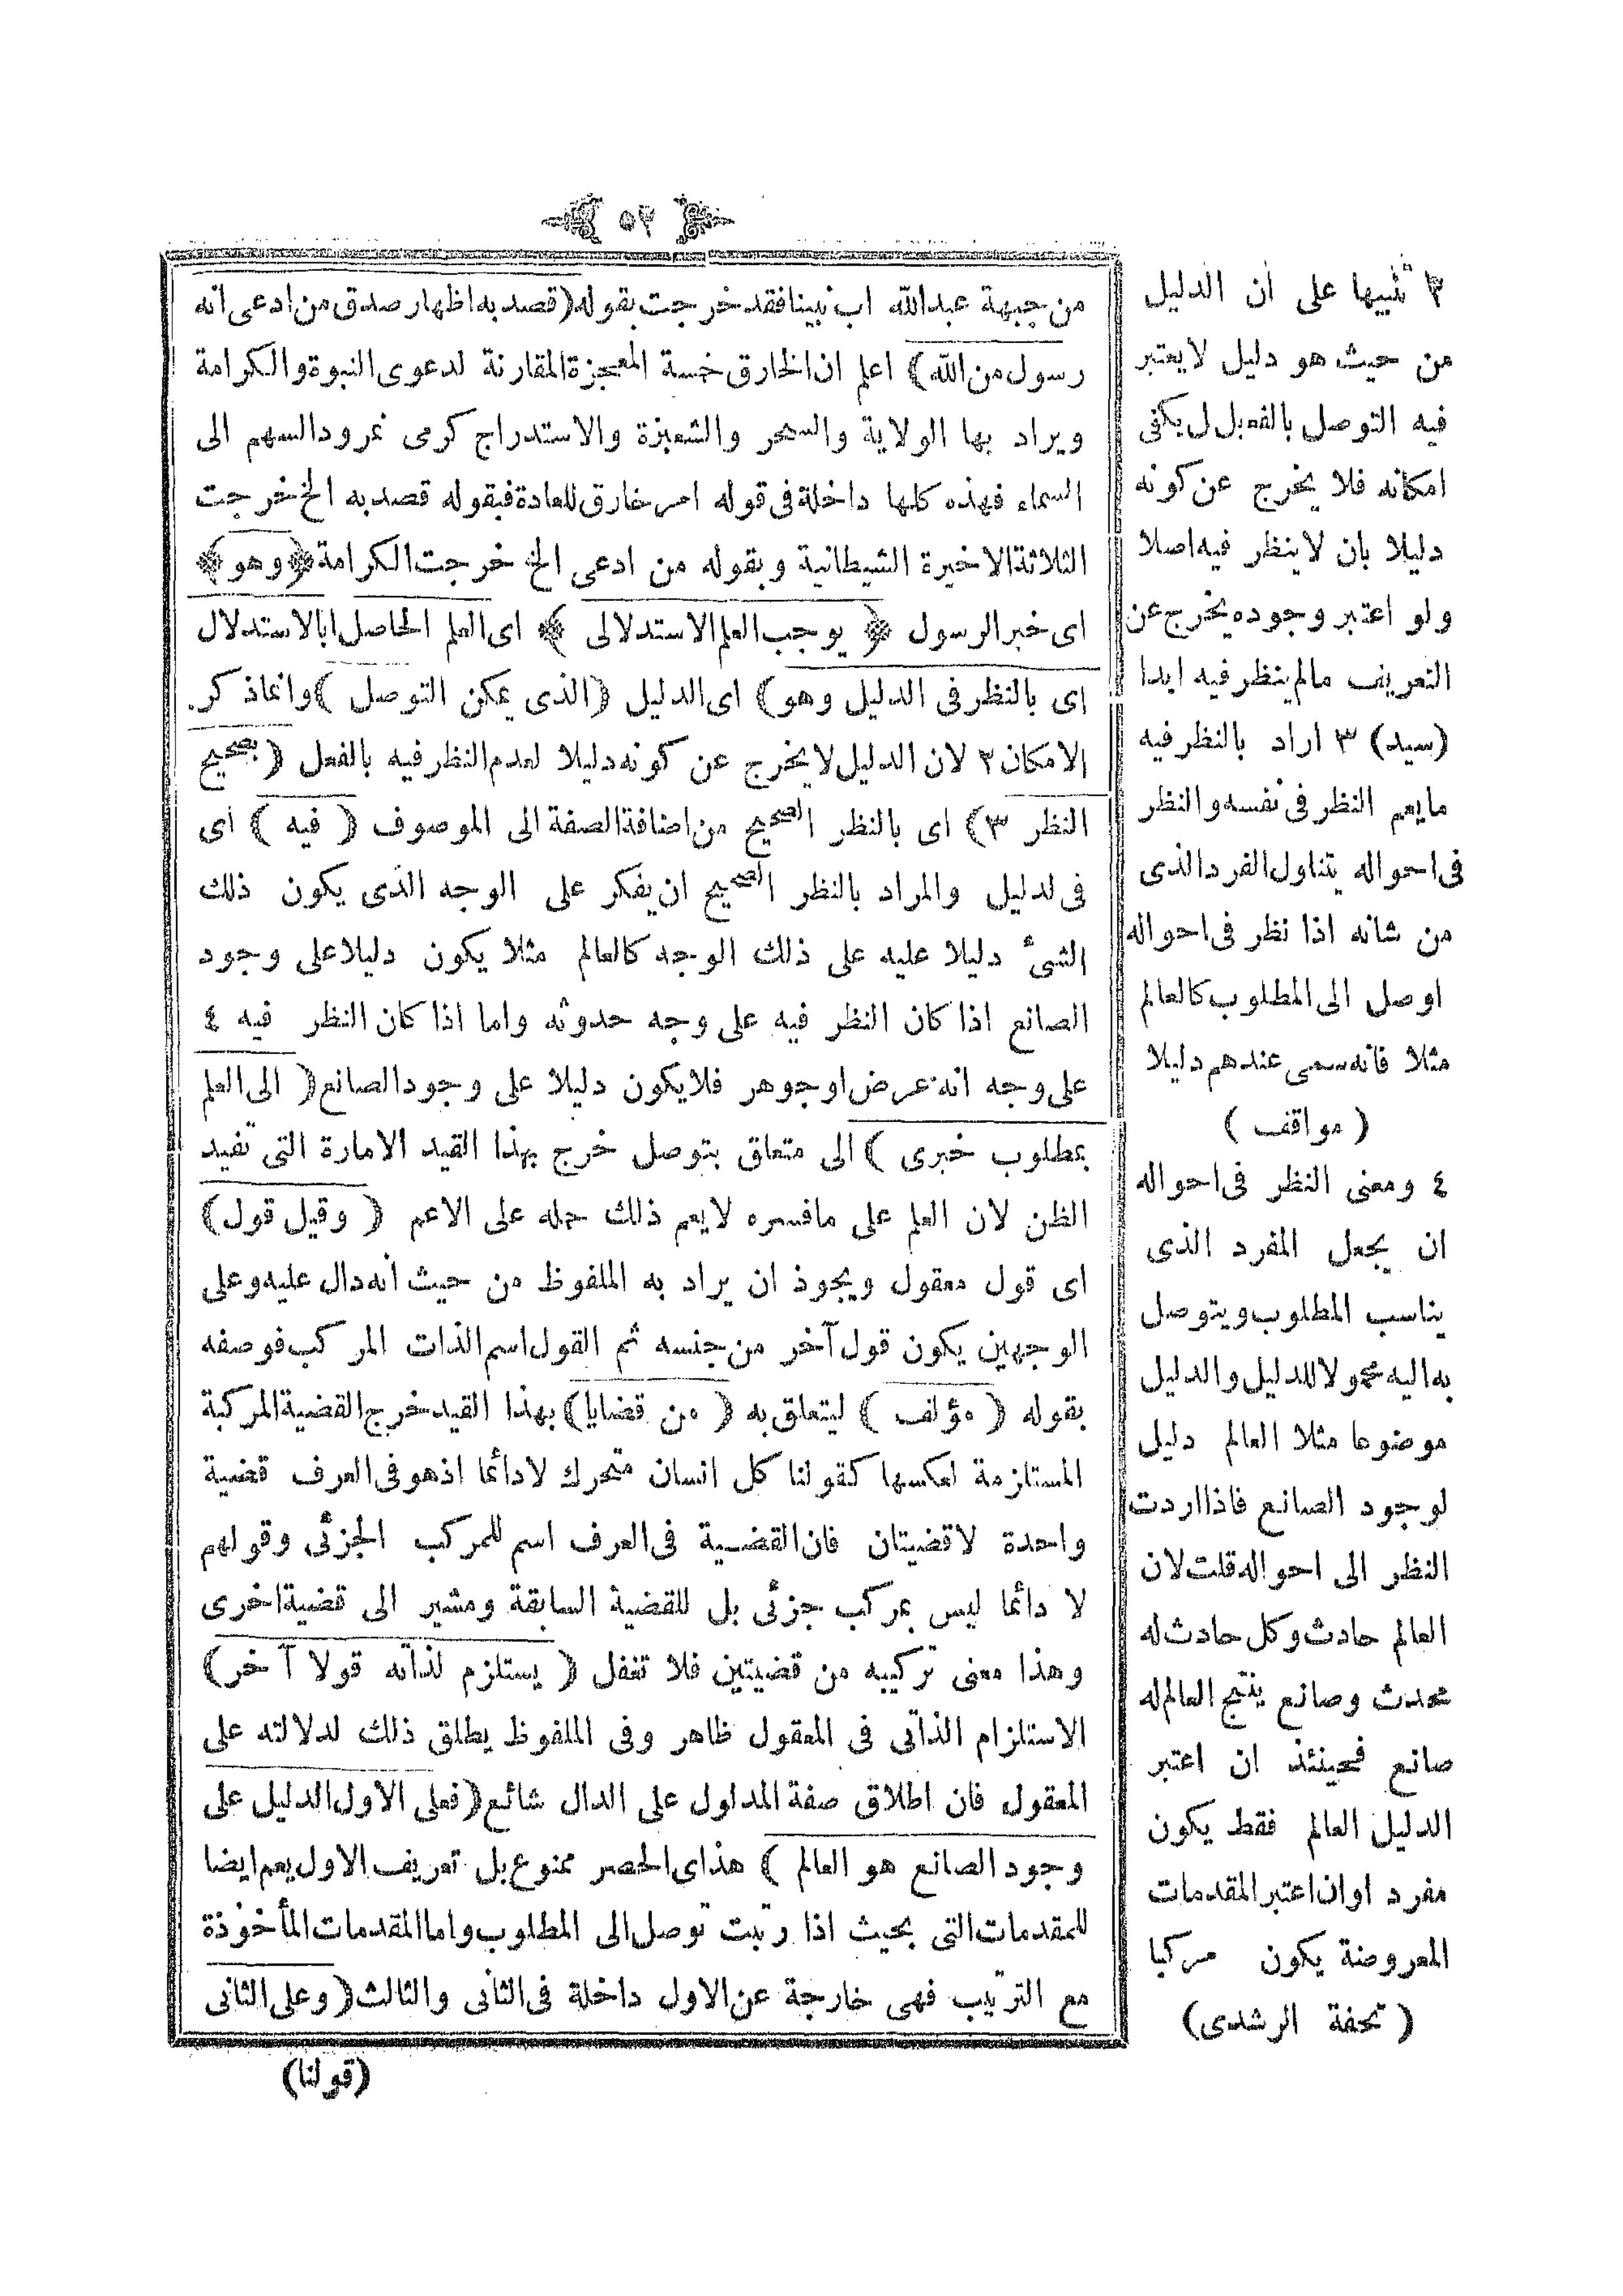 ﴿ ٥٢ ﴾
من جبهة عبدالله اب نبينا فقد خرجت بقوله (قصد به اظهار صدق من ادعى انه
رسول من الله) اعلم ان الخارق خمسة المعجزة المقارنة لدعوى النبوة والكرامة
ويراد بها الولاية والسحر والشعبزة والاستدراج كرمى نمرود السهم الى
السماء فهذه كلها داخلة فى قوله امر خارق للعادة فبقوله قصد به الخ خرجت
الثلاثة الاخيرة الشيطانية وبقوله من ادعى الخ خرجت الكرامة ﴿ وهو ﴾
اى خبر الرسول ﴿ يوجب العلم الاستدلالى ﴾ اى العلم الحاصل ابالاستدلال
اى بالنظر فى الدليل وهو) اى الدليل (الذى يمكن التوصل) وانماذكر
الامكان ٢ لان الدليل لايخرج عن كونه دليلا لعدم النظر فيه بالفعل (بصحيح
النظر ٣) اى بالنظر الصحيح من اضافة الصفة الى الموصوف (فيه) اى
فى لدليل والمراد بالنظر الصحيح ان يفكر على الوجه الذى يكون ذلك
الشئ دليلا عليه على ذلك الوجه كالعالم مثلا يكون دليلا على وجود
الصانع اذا كان النظر فيه على وجه حدوثه واما اذا كان النظر فيه ٤
على وجه انه عرض اوجوهر فلايكون دليلا على وجود الصانع (الى العلم
بمطلوب خبرى) الى متعاق بتوصل خرج بهذا القيد الامارة التى تفيد
الظن لان العلم على مافسره لايعم ذلك حمله على الاعم (وقيل قول)
اى قول معقول ويجوذ ان يراد به الملفوظ من حيث أنه دال عليه وعلى
الوجهين يكون قول آخر من جنسه ثم القول اسم الذات المركب فوصفه
بقوله (مؤلف) ليتعلق به (من قضايا) بهذا القيد خرج القضية المركبة
المستلزمة لعكسها كقولنا كل انسان متحرك لادائما اذهو فى العرف قضية
واحدة لاقضيتان فان القضية فى العرف اسم للمركب الجزئى وقولهم
لا دائما ليس بمركب جزئى بل للقضية السابقة ومشير الى قضية اخرى
وهذا معنى تركيبه من قضيتين فلا تغفل (يستلزم لذاته قولا آخر)
الاستلزام الذاتى فى المعقول ظاهر وفى الملفوظ يطلق ذلك لدلالته على
المعقول فان اطلاق صفة المدلول على الدال شائع (فعلى الاول الدليل على
وجود الصانع هو العالم) هذاى الحصر ممنوع بل تعريف الاول يعم ايضا
للمقدمات التى بحيث اذا رتبت توصل الى المطلوب واما المقدمات المأخوذة
مع الترتيب فهى خارجة عن الاول داخلة فى الثانى والثالث (وعلى الثانى
(قولنا)
٢ تنبيها على أن الدليل
من حيث هو دليل لايعتبر
فيه التوصل بالفعل بل يكفى
امكانه فلا يخرج عن كونه
دليلا بان لاينظر فيه اصلا
ولو اعتبر وجوده يخرج عن
التعريف مالم ينظر فيه ابدا
(سيد) ٣ اراد بالنظر فيه
مايعم النظر فى نفسه والنظر
فى احواله يتناول الفرد الذى
من شانه اذا نظر فى احواله
اوصل الى المطلوب كالعالم
مثلا فانه سمى عندهم دليلا
(مواقف)
٤ ومعنى النظر فى احواله
ان يجعل المفرد الذى
يناسب المطلوب ويتوصل
به اليه محمولا للدليل والدليل
موضوعا مثلا العالم دليل
لوجود الصانع فاذا اردت
النظر الى احواله قلت لان
العالم حادث وكل حادث له
محدث وصانع ينتج العالم له
صانع فحينئذ ان اعتبر
الدليل العالم فقط يكون
مفرد اوان اعتبر المقدمات
المعروضة يكون مركبا
(تحفة الرشدى)